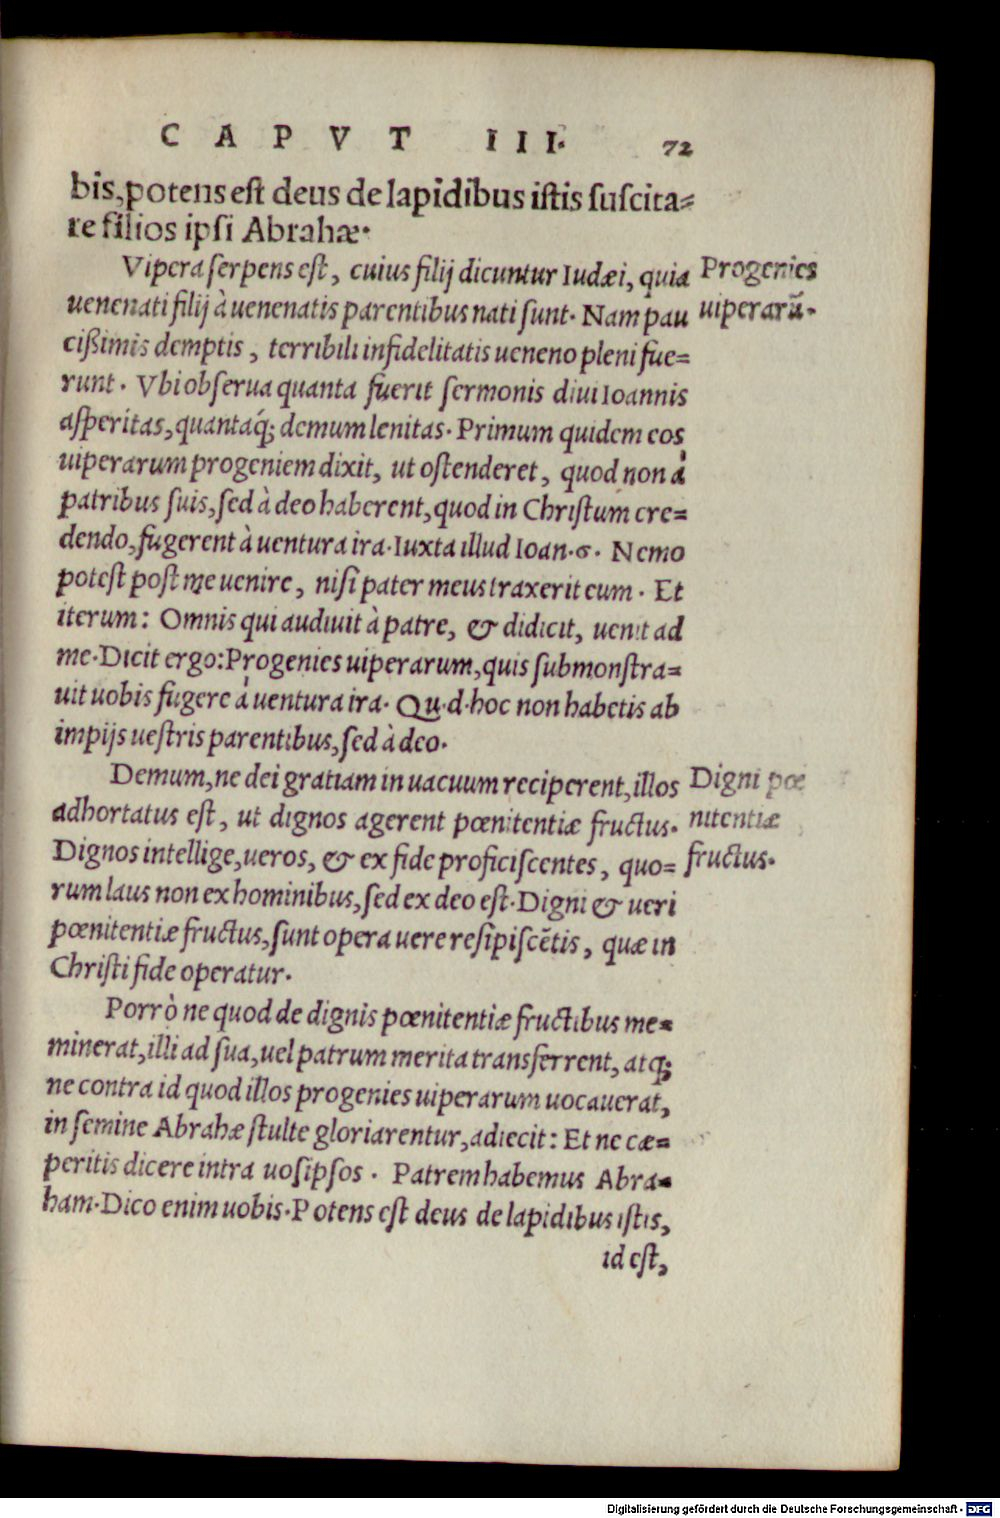 CAPVT III. 72
bis, potens est deus de lapidibus istis suscita=
re filios ipsi Abrahæ.
Vipera serpens est, cuius filij dicuntur Iudæi, quia
uenenati filij à uenenatis parentibus nati sunt. Nam pau
cißimis demptis, terribili infidelitatis ueneno pleni fue=
runt. Vbi obserua quanta fuerit sermonis diui Ioannis
asperitas, quantaq́; demum lenitas. Primum quidem eos
uiperarum progeniem dixit, ut ostenderet, quod non à
patribus suis, sed à deo haberent, quod in Christum cre=
dendo, fugerent à uentura ira. Iuxta illud Ioan. 6. Nemo
potest post me uenire, nisi pater meus traxerit eum. Et
iterum: Omnis qui audiuit à patre, & didicit, uenit ad
me. Dicit ergo: Progenies uiperarum, quis submonstra=
uit uobis fugere à uentura ira. Qu. d. hoc non habetis ab
impijs uestris parentibus, sed à deo.
Demum, ne dei gratiam in uacuum reciperent, illos
adhortatus est, ut dignos agerent pœnitentiæ fructus.
Dignos intellige, ueros, & ex fide proficiscentes, quo=
rum laus non ex hominibus, sed ex deo est. Digni & ueri
pœnitentiæ fructus, sunt opera uere resipiscẽtis, quæ in
Christi fide operatur.
Porrò ne quod de dignis pœnitentiæ fructibus me=
minerat, illi ad sua, uel patrum merita transferrent, atq;
ne contra id quod illos progenies uiperarum uocauerat,
in semine Abrahæ stulte gloriarentur, adiecit: Et ne cæ=
peritis dicere intra uosipsos. Patrem habemus Abra=
ham. Dico enim uobis. Potens est deus de lapidibus istis,
id est,
Progenies
uiperarũ.
Digni pœ
nitentiæ
fructus.
Digitalisierung gefördert durch die Deutsche Forschungsgemeinschaft - DFG